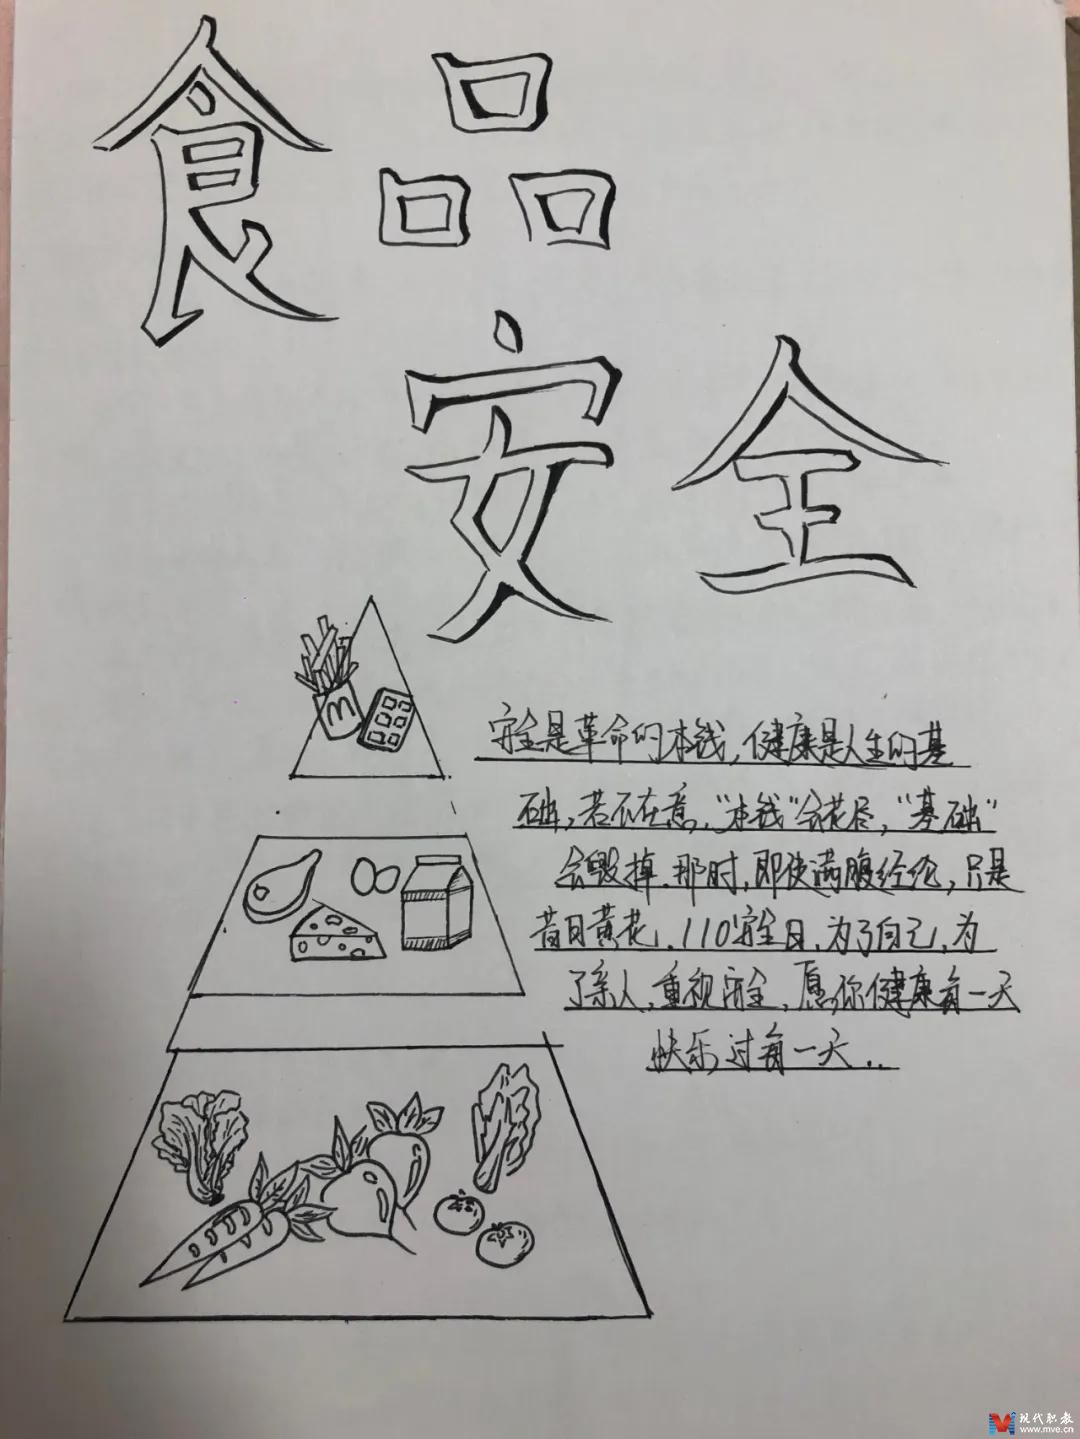 食品
安全
安全是革命的本钱,健康是人生的基
础,若不在意,"本钱"会花尽,"基础"
会毁掉.那时,即使满腹经纶,只是
昔日黄花.110安全日,为了自己,为
了亲人,重视安全,愿你健康每一天
快乐过每一天..
M
现代职教
www.mve.cn